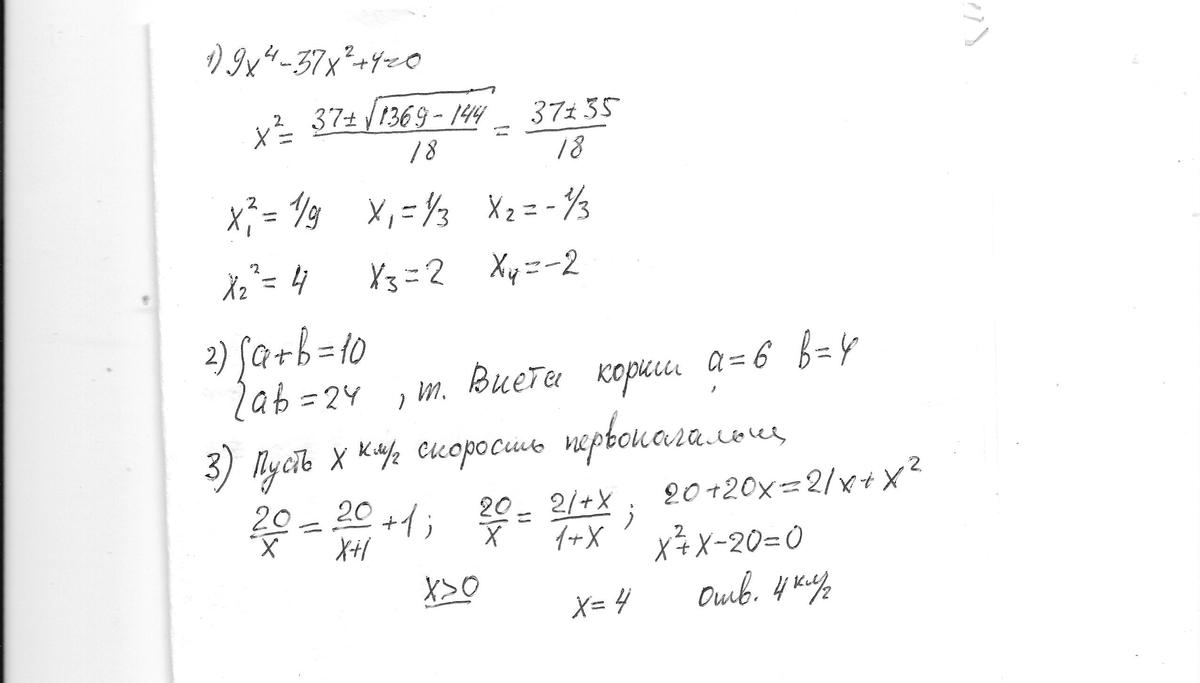 1) 9x⁴-37x²+4=0
x² = (37±√(1369-144))/18 = (37±35)/18
x₁² = 1/9 x₁ = 1/3 x₂ = -1/3
x₂² = 4 x₃ = 2 x₄ = -2
2) {a+b=10
{ab=24 , т. Виета корни a=6 b=4
3) Пусть x км/г скорость первоначальн
20/x = 20/(x+1) + 1 ; 20/x = (21+x)/(1+x) ; 20+20x=21x+x²
x²+x-20=0
x>0 x=4 Отв. 4 км/г